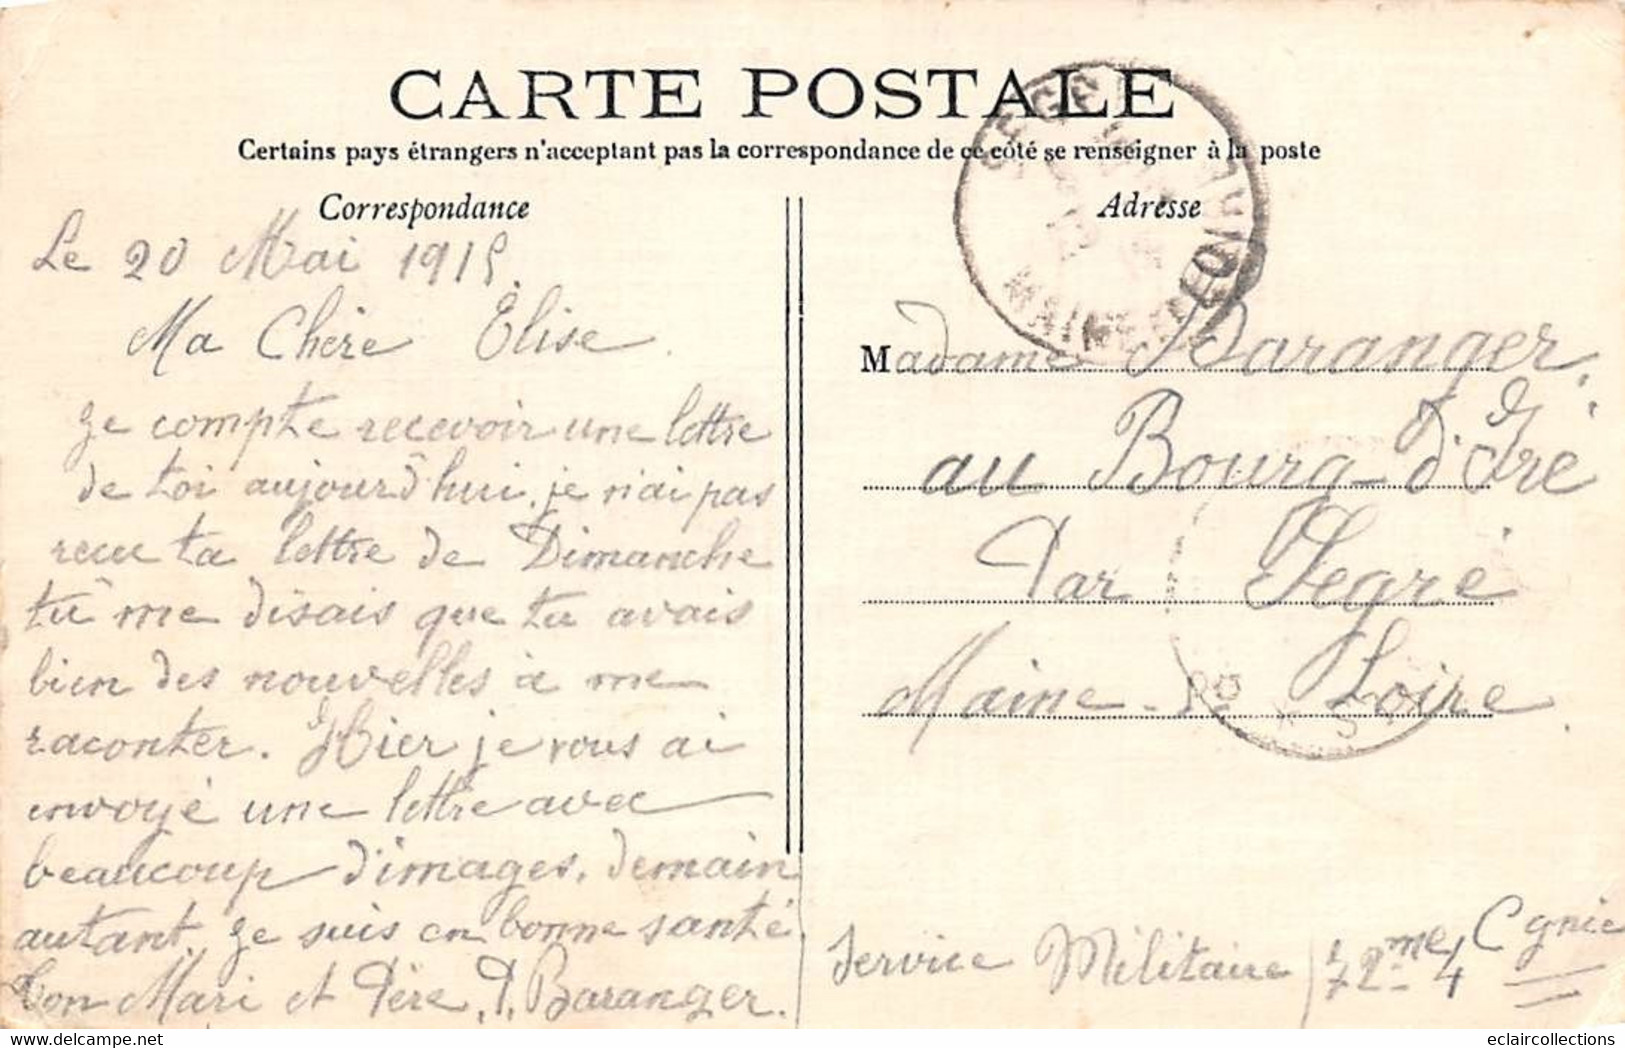 CARTE POSTALE
Certains pays étrangers n'acceptant pas la correspondance de ce côté se renseigner à la poste
Correspondance
Le 20 Mai 1915.
Ma Chère Elise
Je compte recevoir une lettre
de toi aujourd'hui. je n'ai pas
recu ta lettre de Dimanche
tu me disais que tu avais
bien des nouvelles à me
raconter. Hier je vous ai
envoyé une lettre avec
beaucoup d'images. demain
autant. Je suis en bonne santé
Ton Mari et Père. P. Baranger.
Adresse
Madame Baranger.
au Bourg-d'Iré
Par Segré
Maine - Loire.
Service Militaire 72me 4 Cgnie
SEGRÉ
MAINE-ET-LOIRE
eclaircollections